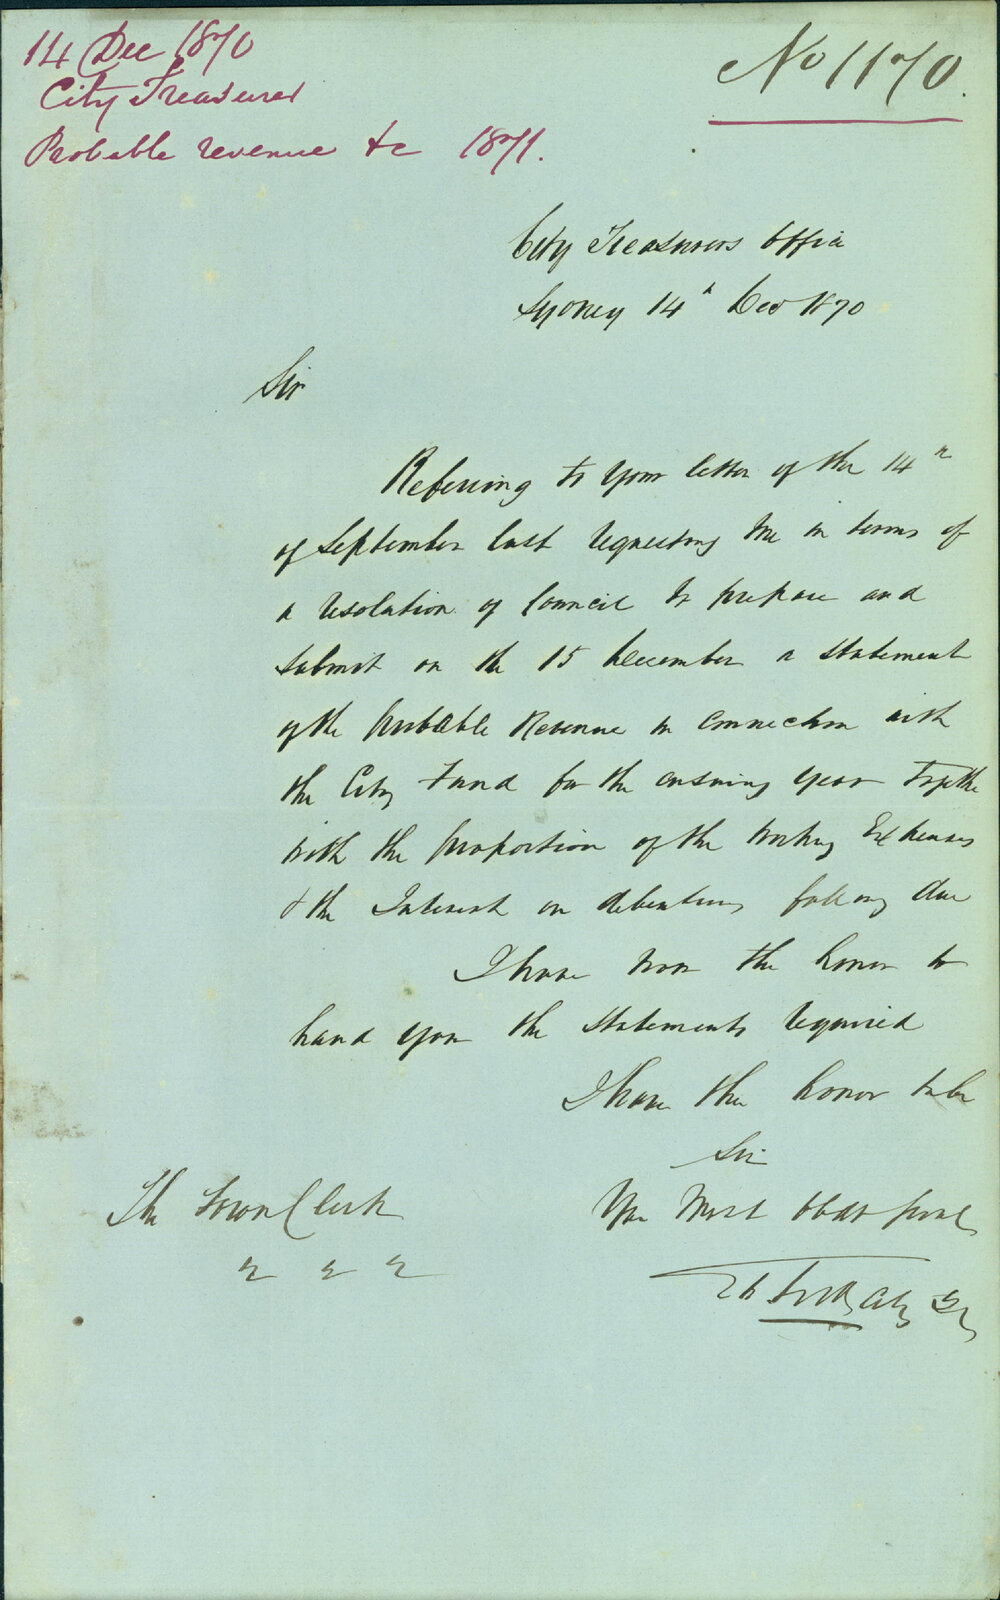 14 Dec 1870
City Treasurer
Probable revenue &c 1871.
No 1170.
City Treasurers Office
Sydney 14th Dec 1870
Sir
Referring to your letter of the 14th
of September last requesting me in terms of
a resolution of Council to prepare and
submit on the 15 December a statement
of the probable Revenue in connection with
the City Fund for the ensuing year together
with the proportion of the working Expenses
& the Interest on debentures falling due
I have now the honor to
hand you the statements required
I have the honor to be
Sir
The Town Clerk
Your Most Obdt Servt
City Tr